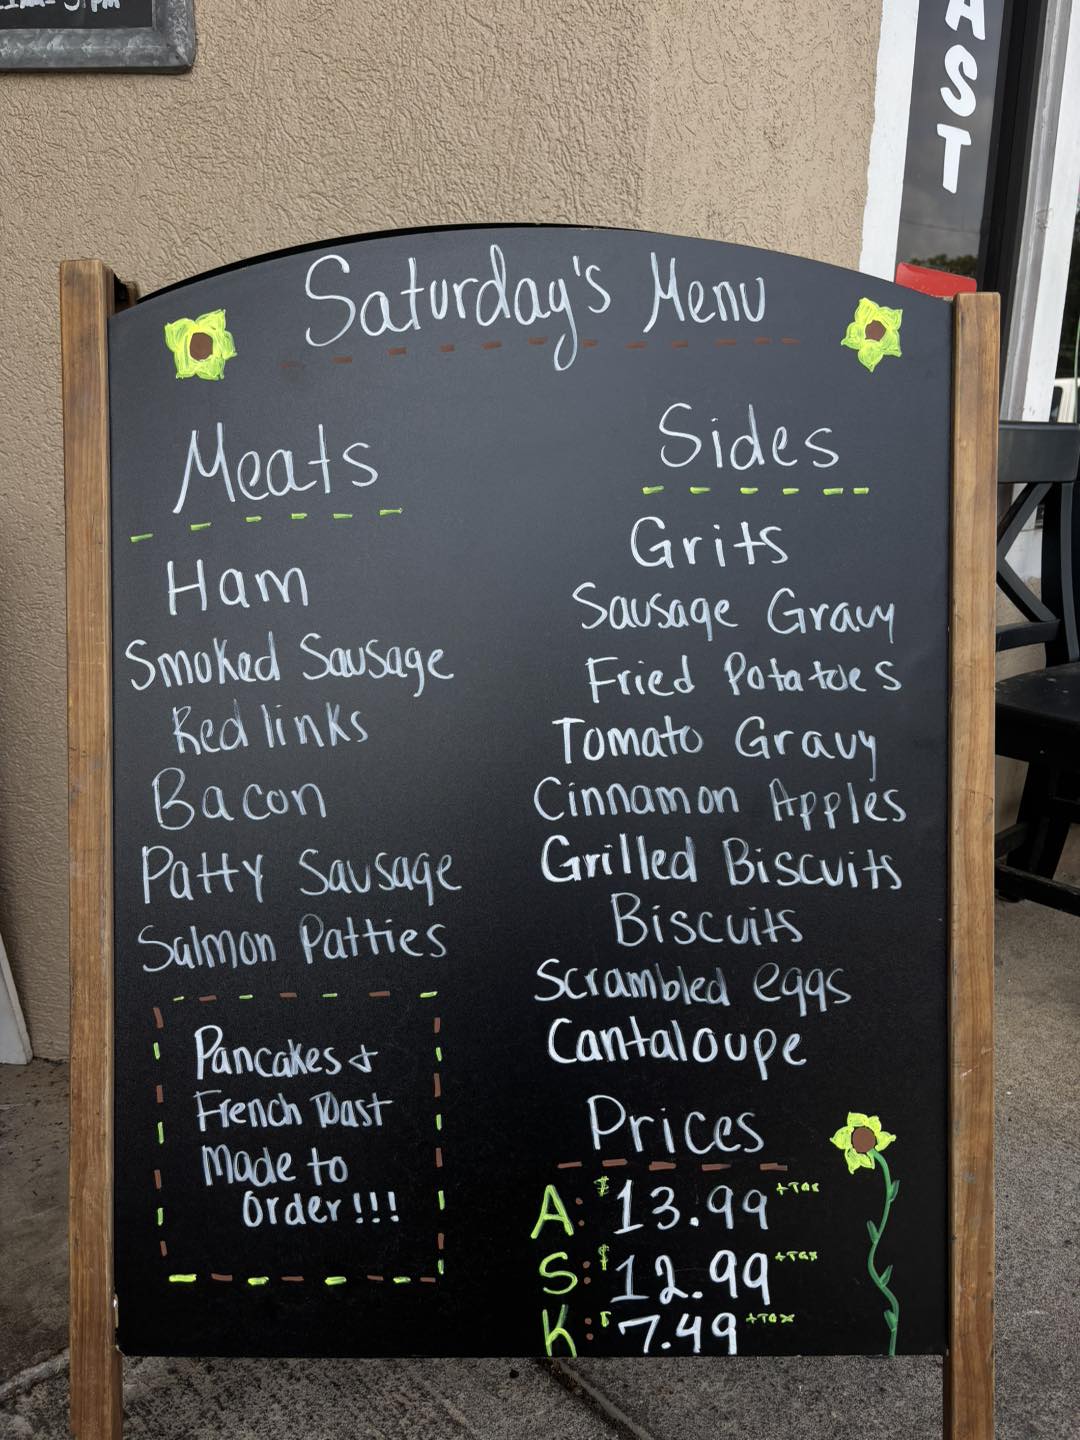 5 PM
AST
Saturday's Menu
Meats
Ham
Smoked Sausage
Red links
Bacon
Patty Sausage
Salmon Patties
Pancakes &
French Toast
Made to
Order!!!
Sides
Grits
Sausage Gravy
Fried Potatoes
Tomato Gravy
Cinnamon Apples
Grilled Biscuits
Biscuits
Scrambled eggs
Cantaloupe
Prices
A: $13.99 +Tax
S: $12.99 +Tax
K: $7.49 +Tax